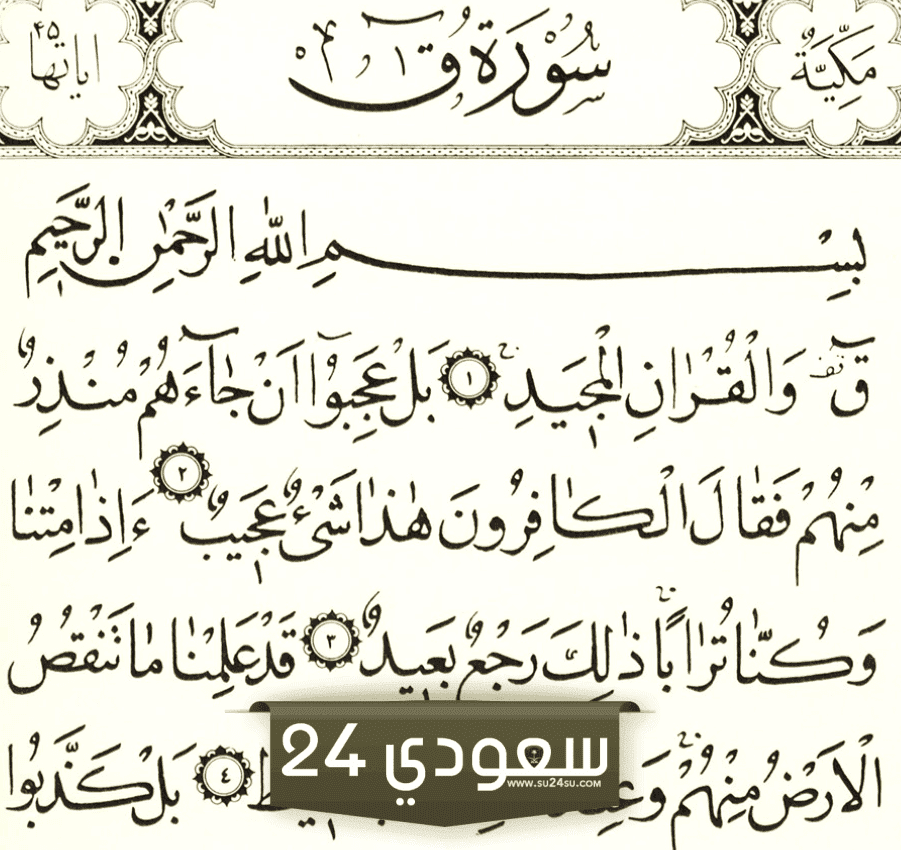 مَكِّيَّةٌ
سُورَةُ ق
اياتها ٤٥
بِسْمِ اللّٰهِ الرَّحْمٰنِ الرَّحِيمِ
قٓ وَالْقُرْاٰنِ الْمَجِيدِ ١ بَلْ عَجِبُوٓا اَنْ جَٓاءَهُمْ مُنْذِرٌ
مِنْهُمْ فَقَالَ الْكَافِرُونَ هٰذَا شَىْءٌ عَجِيبٌ ٢ ءَاِذَا مِتْنَا
وَكُنَّا تُرَابًا ذٰلِكَ رَجْعٌ بَعِيدٌ ٣ قَدْ عَلِمْنَا مَا تَنْقُصُ
الْاَرْضُ مِنْهُمْ ٤ بَلْ كَذَّبُوا
سعودي 24
www.su24su.com